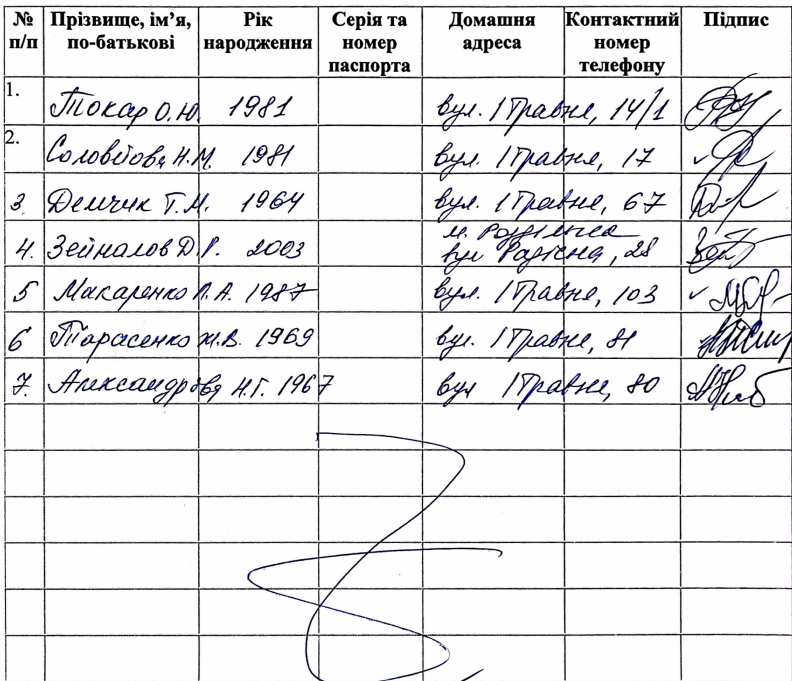 № п/п Прізвище, ім’я, по-батькові Рік народження Серія та номер паспорта Домашня адреса Контактний номер телефону Підпис
1. Токар О.Ю. 1981 вул. 1 Травня, 14/1
2. Соловйова Н.М. 1981 вул. 1 Травня, 17
3 Демчик Т.М. 1964 вул. 1 Травня, 67
4. Зейналов Д.Р. 2003 м. Роздільна вул Радісна, 28
5 Макаренко Л.А. 1987 вул. 1 Травня, 103
6 Тарасенко Ж.В. 1969 вул. 1 Травня, 81
7. Александрова Н.Г. 1967 вул 1 Травня, 80